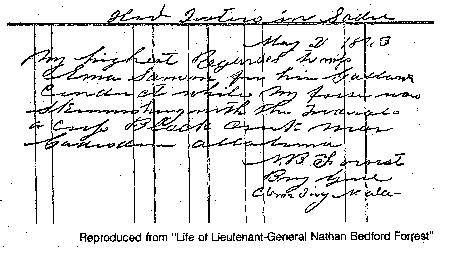 Hed Quaters in Sadle
May 2 1863
My highest Regardes to miss
Ema Sansom for hir Gallant
Conduct while my forse was
Skirmishing with the Federals
a cross Black Creek near
Gadesden Allabama
N.B. Forrest
Brig Genl
Comding N. Ala—
Reproduced from "Life of Lieutenant-General Nathan Bedford Forrest"